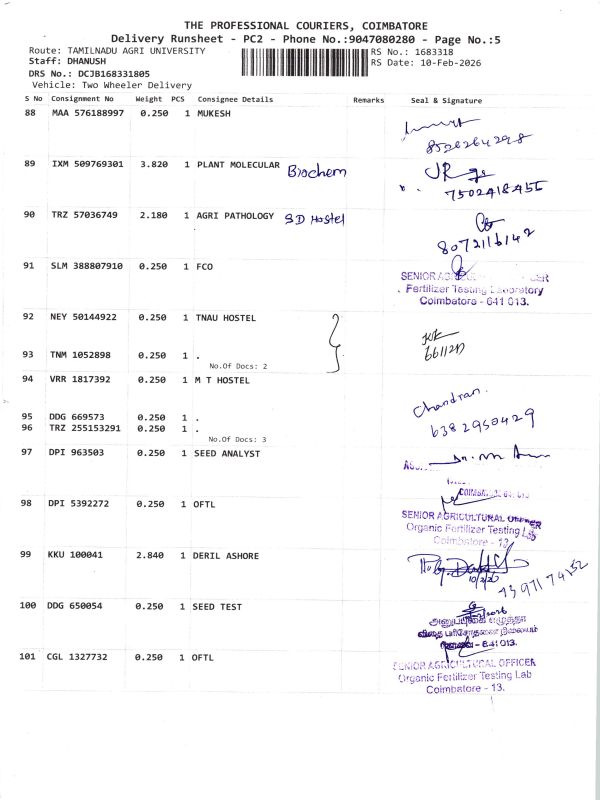 THE PROFESSIONAL COURIERS, COIMBATORE
Delivery Runsheet - PC2 - Phone No.:9047080280 - Page No.:5
Route: TAMILNADU AGRI UNIVERSITY RS No.: 1683318
Staff: DHANUSH RS Date: 10-Feb-2026
DRS No.: DCJB168331805
Vehicle: Two Wheeler Delivery
S No Consignment No Weight PCS Consignee Details Remarks Seal & Signature
88 MAA 576188997 0.250 1 MUKESH
8526264298
89 IXM 509769301 3.820 1 PLANT MOLECULAR Biochem
7502418456
90 TRZ 57036749 2.180 1 AGRI PATHOLOGY SD Hostel
8072116142
91 SLM 388807910 0.250 1 FCO
SENIOR
Fertilizer Testing Laboratory
Coimbatore - 641 013.
92 NEY 50144922 0.250 1 TNAU HOSTEL
93 TNM 1052898 0.250 1 .
No.Of Docs: 2
94 VRR 1817392 0.250 1 M T HOSTEL
Chandran.
6382950429
95 DDG 669573 0.250 1 .
96 TRZ 255153291 0.250 1 .
No.Of Docs: 3
97 DPI 963503 0.250 1 SEED ANALYST
98 DPI 5392272 0.250 1 OFTL
SENIOR AGRICULTURAL OFFICER
Organic Fertilizer Testing Lab
Coimbatore - 13.
99 KKU 100041 2.840 1 DERIL ASHORE
100 DDG 650054 0.250 1 SEED TEST
விதை பரிசோதனை நிலையம்
641 013.
101 CGL 1327732 0.250 1 OFTL
SENIOR AGRICULTURAL OFFICER
Organic Fertilizer Testing Lab
Coimbatore - 13.